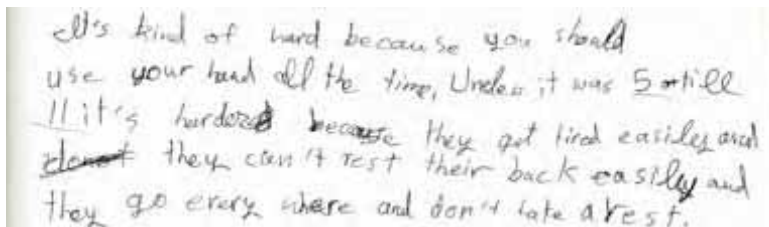 It's kind of hard because you should
use your hand all the time, Unless it was 5 till
11 it's harder because they get tired easiley and
they can't rest their back easiley and
they go every where and don't take a rest.